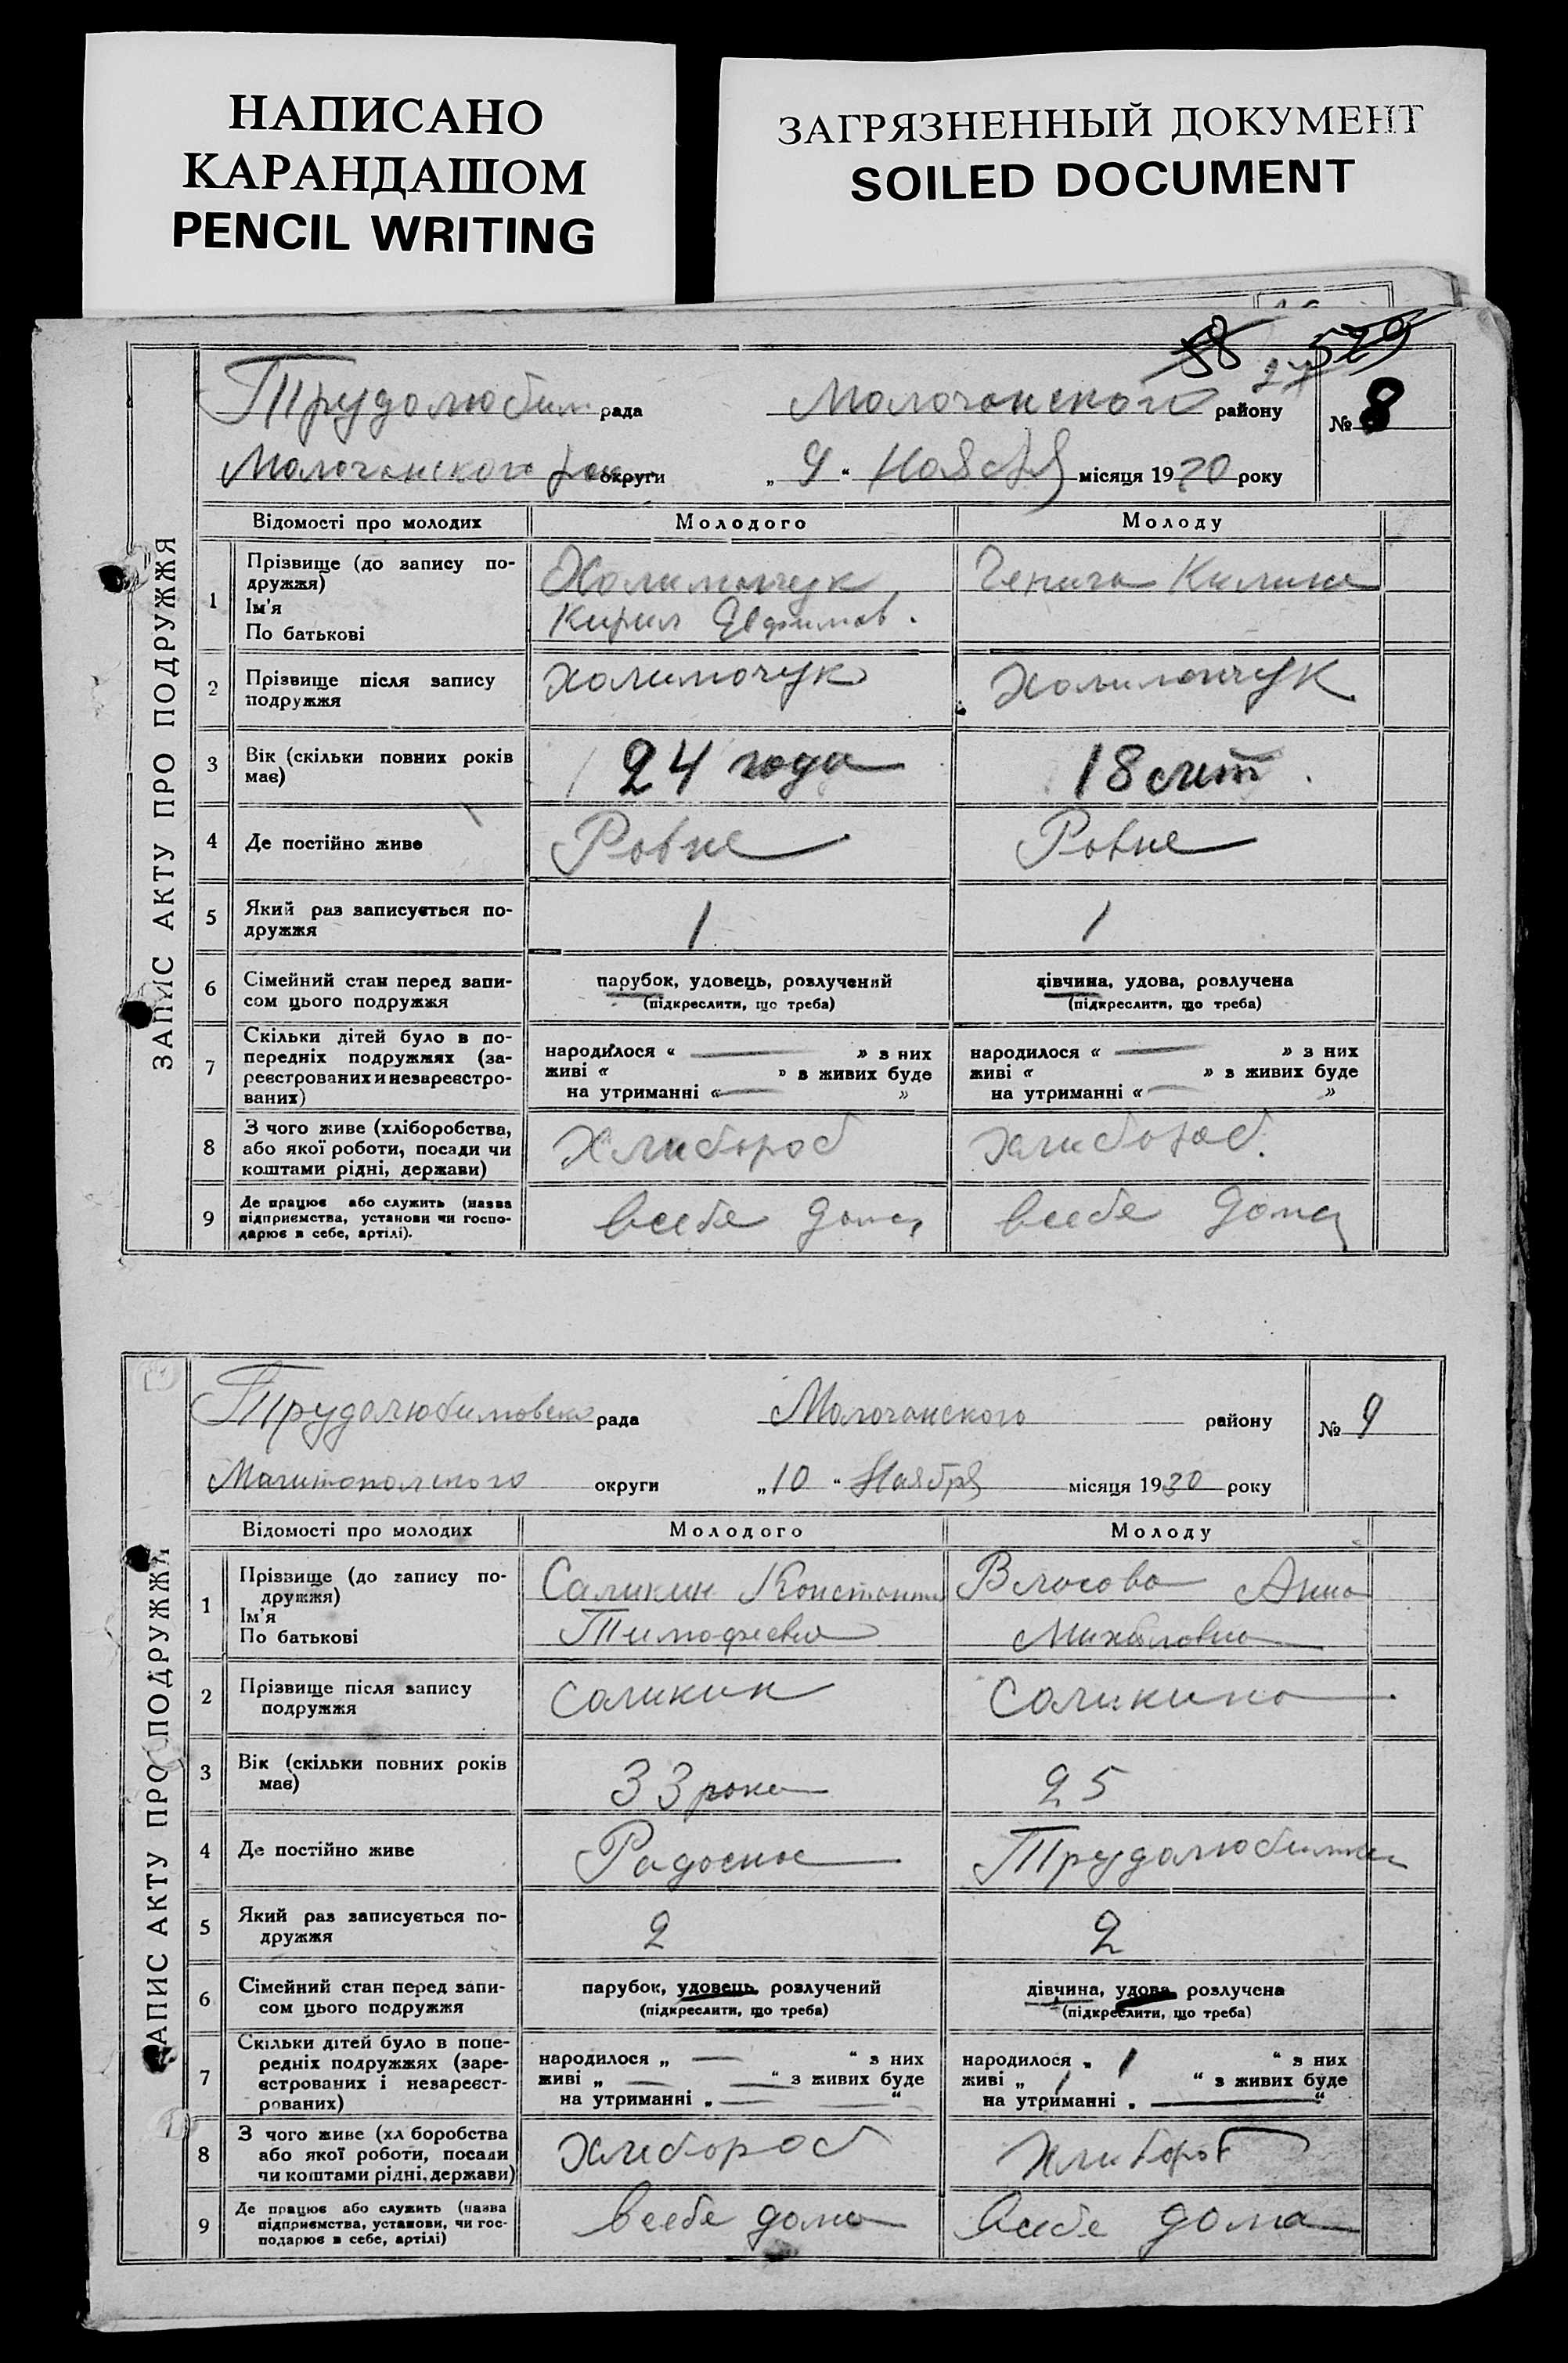 НАПИСАНО
КАРАНДАШОМ
PENCIL WRITING
ЗАГРЯЗНЕННЫЙ ДОКУМЕНТ
SOILED DOCUMENT
58 529
27
ЗАПИС АКТУ ПРО ПОДРУЖЖЯ
Трудолюбим рада Молочанского району № 8
Молочанского округи „9“ Ноября місяця 1930 року
Відомості про молодих Молодого Молоду
1 Прізвище (до запису по-
дружжя)
Ім'я
По батькові
Холимончук
Кирил Евфимов.
Килина
2 Прізвище після запису
подружжя
Холимончук Холимончук
3 Вік (скільки повних років
має)
24 года 18 лит
4 Де постійно живе Ровне Ровне
5 Який раз записується по-
дружжя
1 1
6 Сімейний стан перед запи-
сом цього подружжя
парубок, удовець, розлучений
(підкреслити, що треба)
дівчина, удова, розлучена
(підкреслити, що треба)
7 Скільки дітей було в по-
передніх подружжях (за-
реєстрованих и незареєстро-
ваних)
народилося « — » з них
живі « » з живих буде
на утриманні « — »
народилося « — » з них
живі « » з живих буде
на утриманні « — »
8 З чого живе (хліборобства,
або якої роботи, посади чи
коштами рідні, держави)
Хлибороб хлибороб.
9 Де працює або служить (назва
підприємства, установи чи госпо-
дарює в себе, артілі).
Всебе дома Всебе дома
ЗАПИС АКТУ ПРО ПОДРУЖЖЯ
Трудолюбимовска рада Молочанского району № 9
Мелитопольского округи „10“ Ноября місяця 1930 року
Відомості про молодих Молодого Молоду
1 Прізвище (до запису по-
дружжя)
Ім'я
По батькові
Саликин Константин
Тимофиевич
Власова Анна
Михайловна
2 Прізвище після запису
подружжя
Саликин Саликина
3 Вік (скільки повних років
має)
33 рока 25
4 Де постійно живе Радосне Трудолюбимка
5 Який раз записується по-
дружжя
2 2
6 Сімейний стан перед запи-
сом цього подружжя
парубок, удовець, розлучений
(підкреслити, що треба)
дівчина, удова, розлучена
(підкреслити, що треба)
7 Скільки дітей було в попе-
редніх подружжях (заре-
єстрованих і незареєст-
рованих)
народилося „ — “ з них
живі „ — “ з живих буде
на утриманні „ — “
народилося „ 1 “ з них
живі „ 1 “ з живих буде
на утриманні „ — “
8 З чого живе (хл боробства
або якої роботи, посади
чи коштами рідні, держави)
Хлибороб Хлибороб
9 Де працює або служить (назва
підприємства, установи, чи гос-
подарює в себе, артілі)
Всебе дома Всебе дома